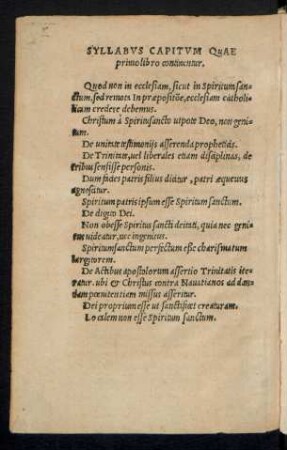 SYLLABVS CAPITVM QVAE
primo libro continentur.
Quod non in ecclesiam, sicut in Spiritum san-
ctum, sed remota In præpositiõe, ecclesiam catholi-
cam credere debemus.
Christum à Spiritusancto utpote Deo, non geni-
tum.
De unitate testimonijs asserenda propheticis.
De Trinitate, uel liberales etiam disciplinas, de
tribus sensisse personis.
Dum fides patris filius dicitur, patri æqueuus
agnoscitur.
Spiritum patris ipsum esse Spiritum sanctum.
De digito Dei.
Non obesse Spiritus sancti deitati, quia nec geni-
tus uideatur, nec ingenitus.
Spiritum sanctum perfectum esse charismatum
largitorem.
De Actibus apostolorum assertio Trinitatis ite-
ratur. ubi & Christus contra Nauatianos ad dan-
dam pœnitentiam missus asseritur.
Dei proprium esse ut sanctificet creaturam.
Localem non esse Spiritum sanctum.